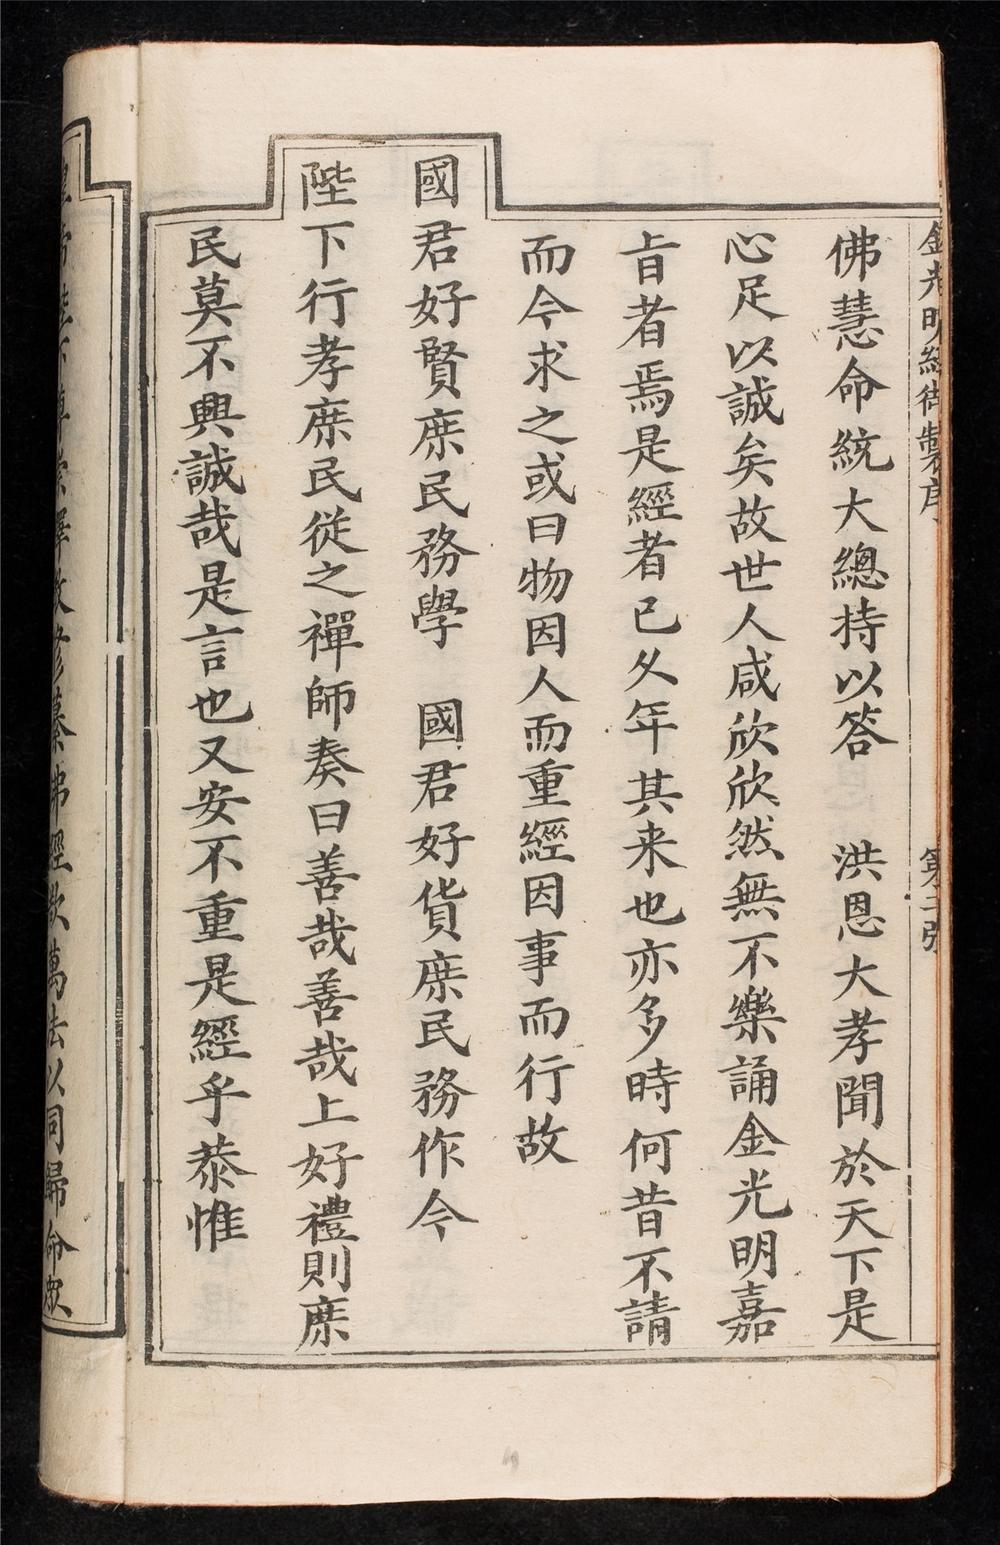 金光明經御製序 第二張
佛慧命統大總持以答 洪恩大孝聞於天下是
心足以誠矣故世人咸欣欣然無不樂誦金光明嘉
㫖者焉是經者已久年其来也亦多時何昔不請
而今求之或曰物因人而重經因事而行故
國君好賢庶民務學 國君好貨庶民務作今
陛下行孝庶民從之禪師奏曰善哉善哉上好禮則庶
民莫不興誠哉是言也又安不重是經乎恭惟
釋教修纂佛經欲萬法以同歸命